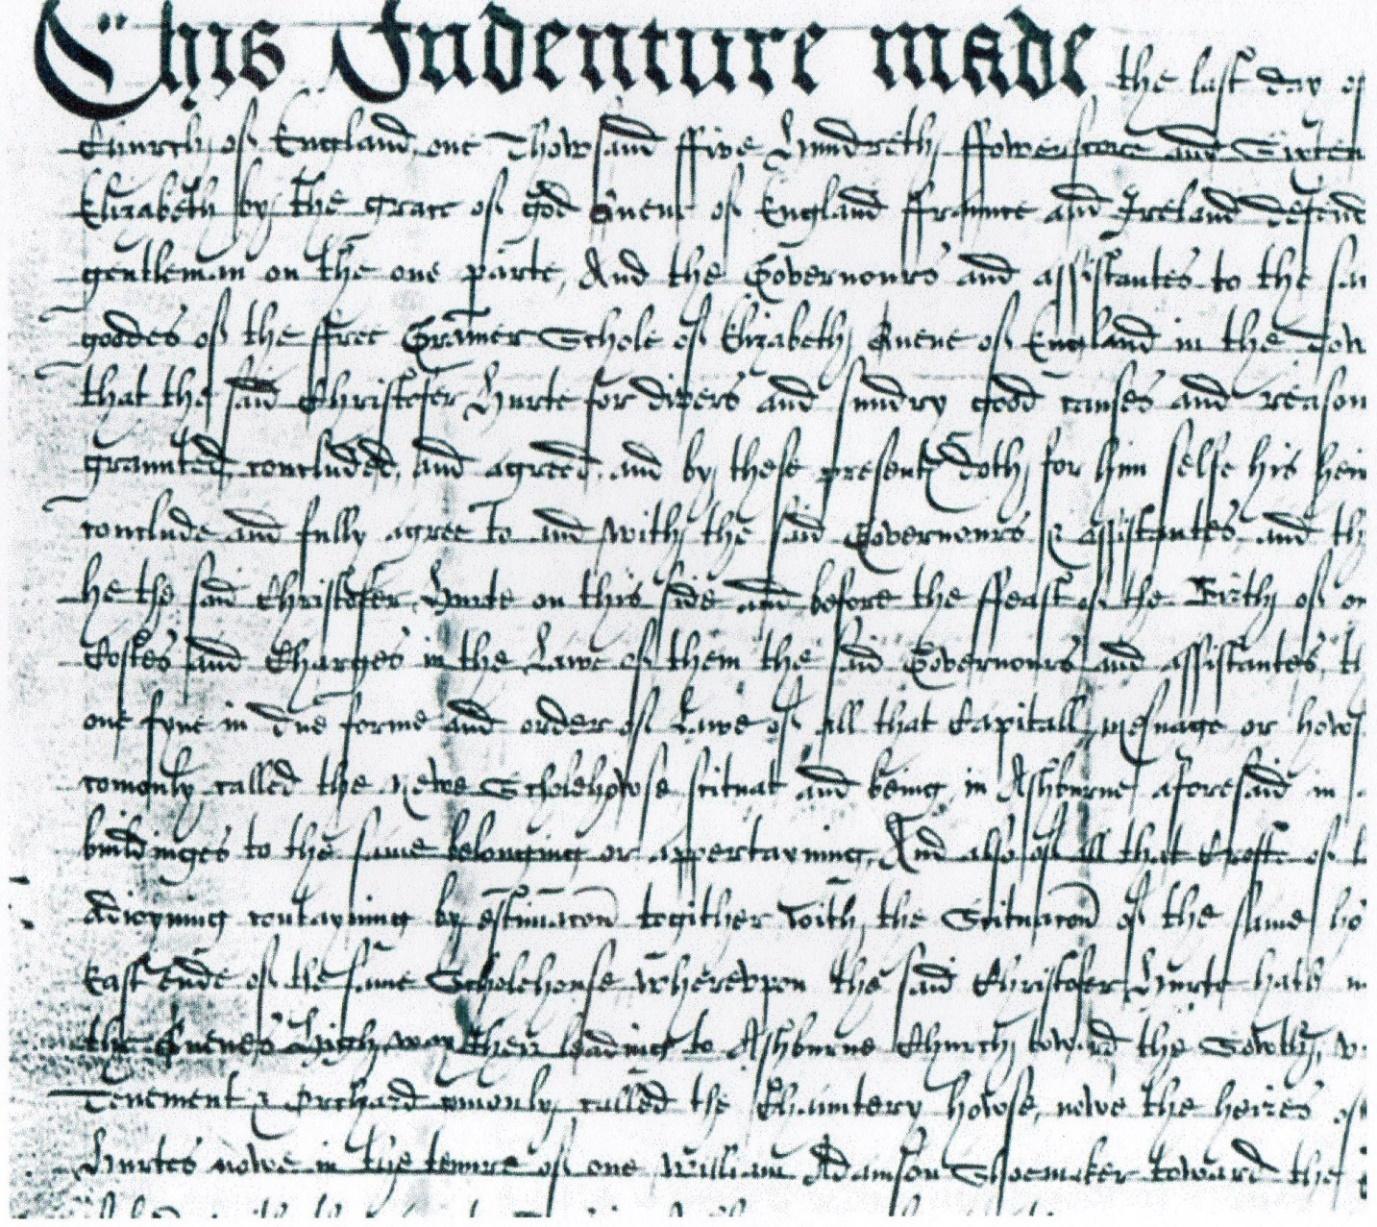 This Indenture made the last day of
Church of England one Thowsand ffive Hundreth ffowerscore and Sixten
Elizabeth by the grace of god Quene of England ffraunce and Ireland defend
gentleman on the one parte, And the Governours and assistantes to the sai
goodes of the ffree Gramer Schole of Elizabeth Quene of England in the Tow
that the said Christofer Hurte for divers and sundry good causes and reason
graunted, concluded, and agreed, and by these presentes doth for him selfe his heir
conclude and fully agree to and with the said Governours & assistantes and th
he the said Christofer Hurte on this side and before the ffeast of the Birth of or
Costes and Charges in the Lawe of them the said Governours and assistantes, th
one fyne in due forme and order of Lawe of all that Capitall mesuage or hows
comonly called the newe Scholehowse scituat and being in Ashburne aforesaid in
buildinges to the same belonging or appertayning, And also of all that Crofte of l
Adioyning contayning by estimacon togither with the Scituacon of the same ho
East ende of the same Scholehouse wherevpon the said Christofer Hurte hath
the Quenes High way then leading to Ashburne Church toward the Sowth,
Tenement & Orchard comonly called the Chauntery howse, nowe the heires of
Hurtes nowe in the tenure of one William Adamson Shoemaker toward the